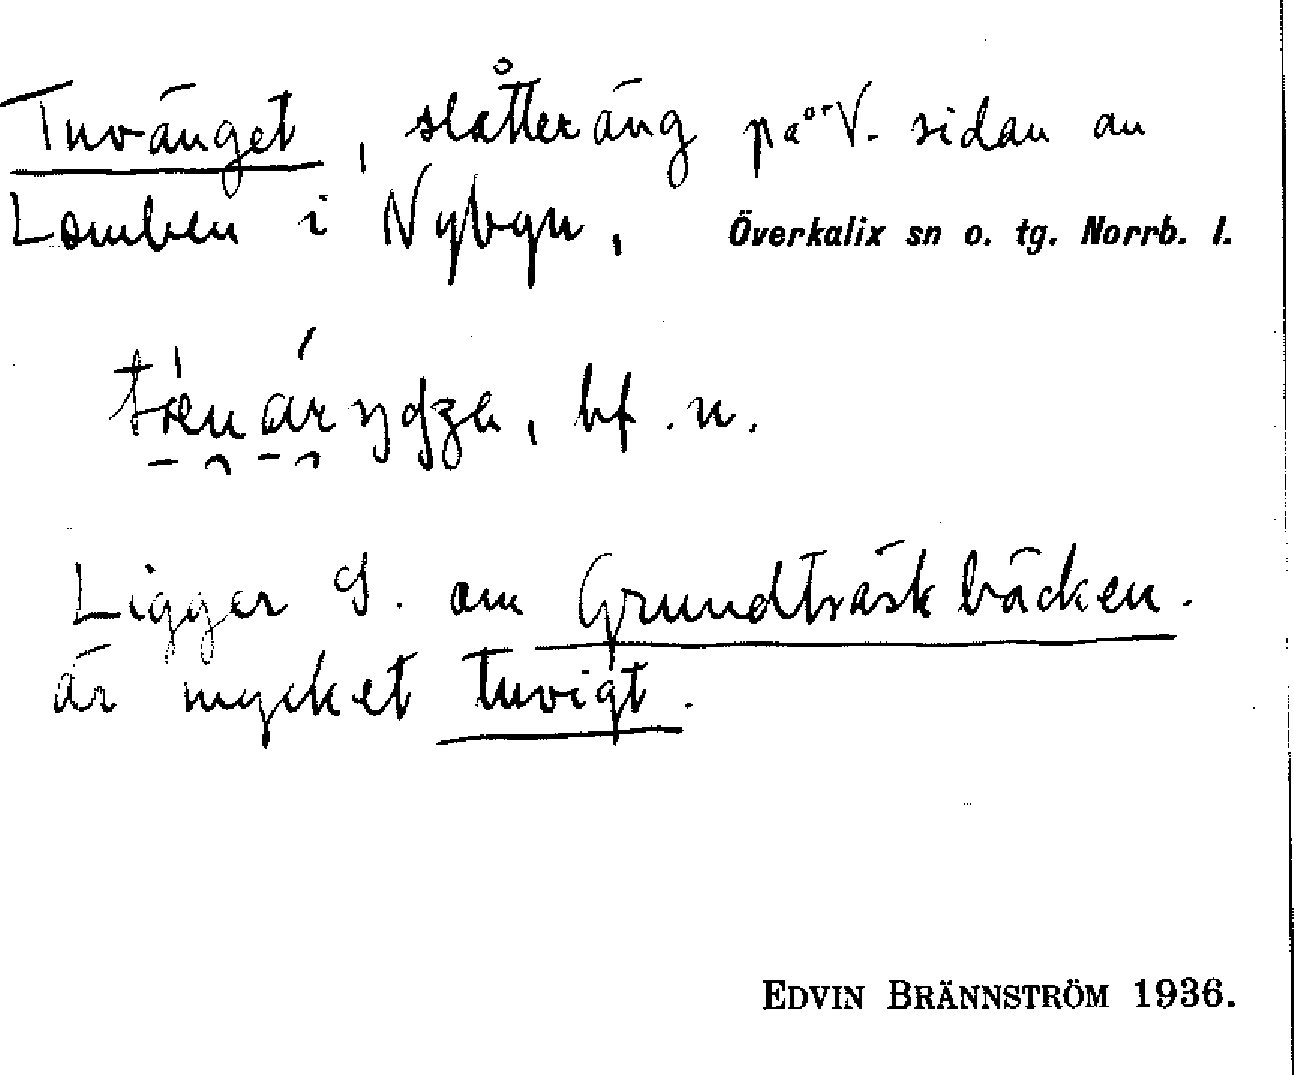 Tuvänget, slåtteräng på V. sidan av
Lomben i Nybyn, Överkalix sn o. tg. Norrb. l.
bf. n.
Ligger S. om Grundträskbäcken.
är mycket tuvigt.
EDVIN BRÄNNSTRÖM 1936.